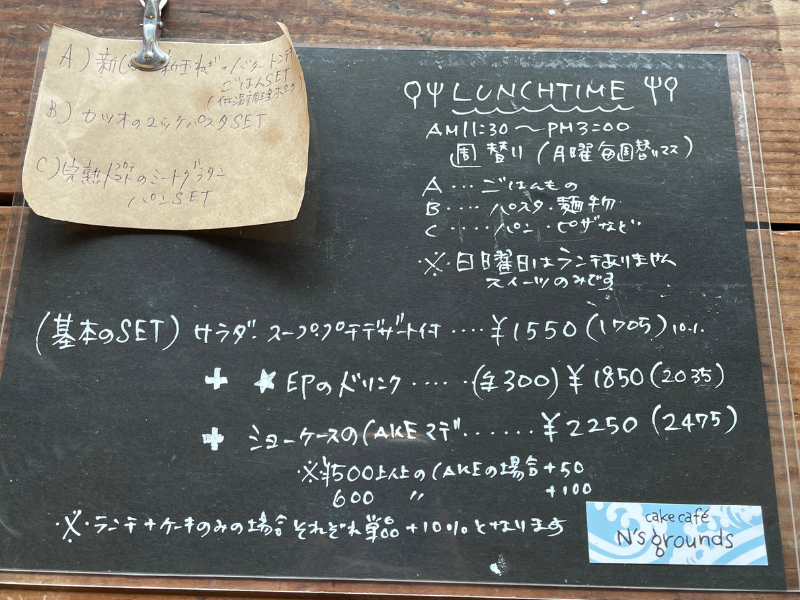 A) 新じゃが・新玉ねぎ・バター
ごはんSET
(低温調理ポーク)
B.) カツオのコッケパスタSET
C) 完熟トマトのミートグラタン
パンSET
LUNCHTIME
AM11:30 〜 PM3:00
週替り (月曜毎週替ります)
A ・・・ ごはんもの
B ・・・・ パスタ・麺物
C ・・・・ パン・ピザなど
※・日曜日はランチありません
スイーツのみです
(基本のSET) サラダ・スープ・プチデザート付 ・・・・ ¥1550 (1705) 10%
+ ★ EPのドリンク ・・・・・ (¥300) ¥1850 (2035)
+ ショーケースのCAKEマデ ・・・・・・ ¥2250 (2475)
※¥500以上のCAKEの場合 +50
600 〃 +100
・※・ランチ+ケーキのみの場合それぞれ単品+10%となります
cake café
N's grounds